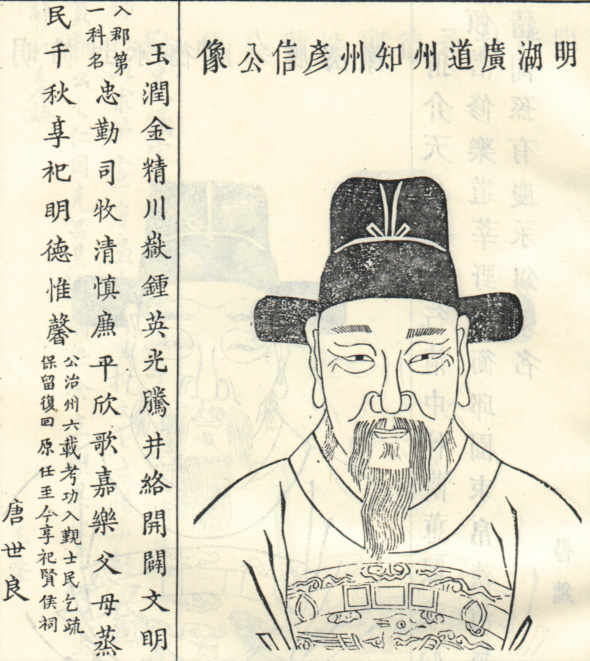 明湖廣道州知州彥信公像
玉潤金精川嶽鍾英光騰井絡開闢文明
入郡第
一科名
忠勤司牧清慎廉平欣歌嘉樂父母蒸
民千秋享祀明德惟馨
公治州六載考功入覲士民乞疏
保留復回原任至今享祀賢侯祠
唐世良